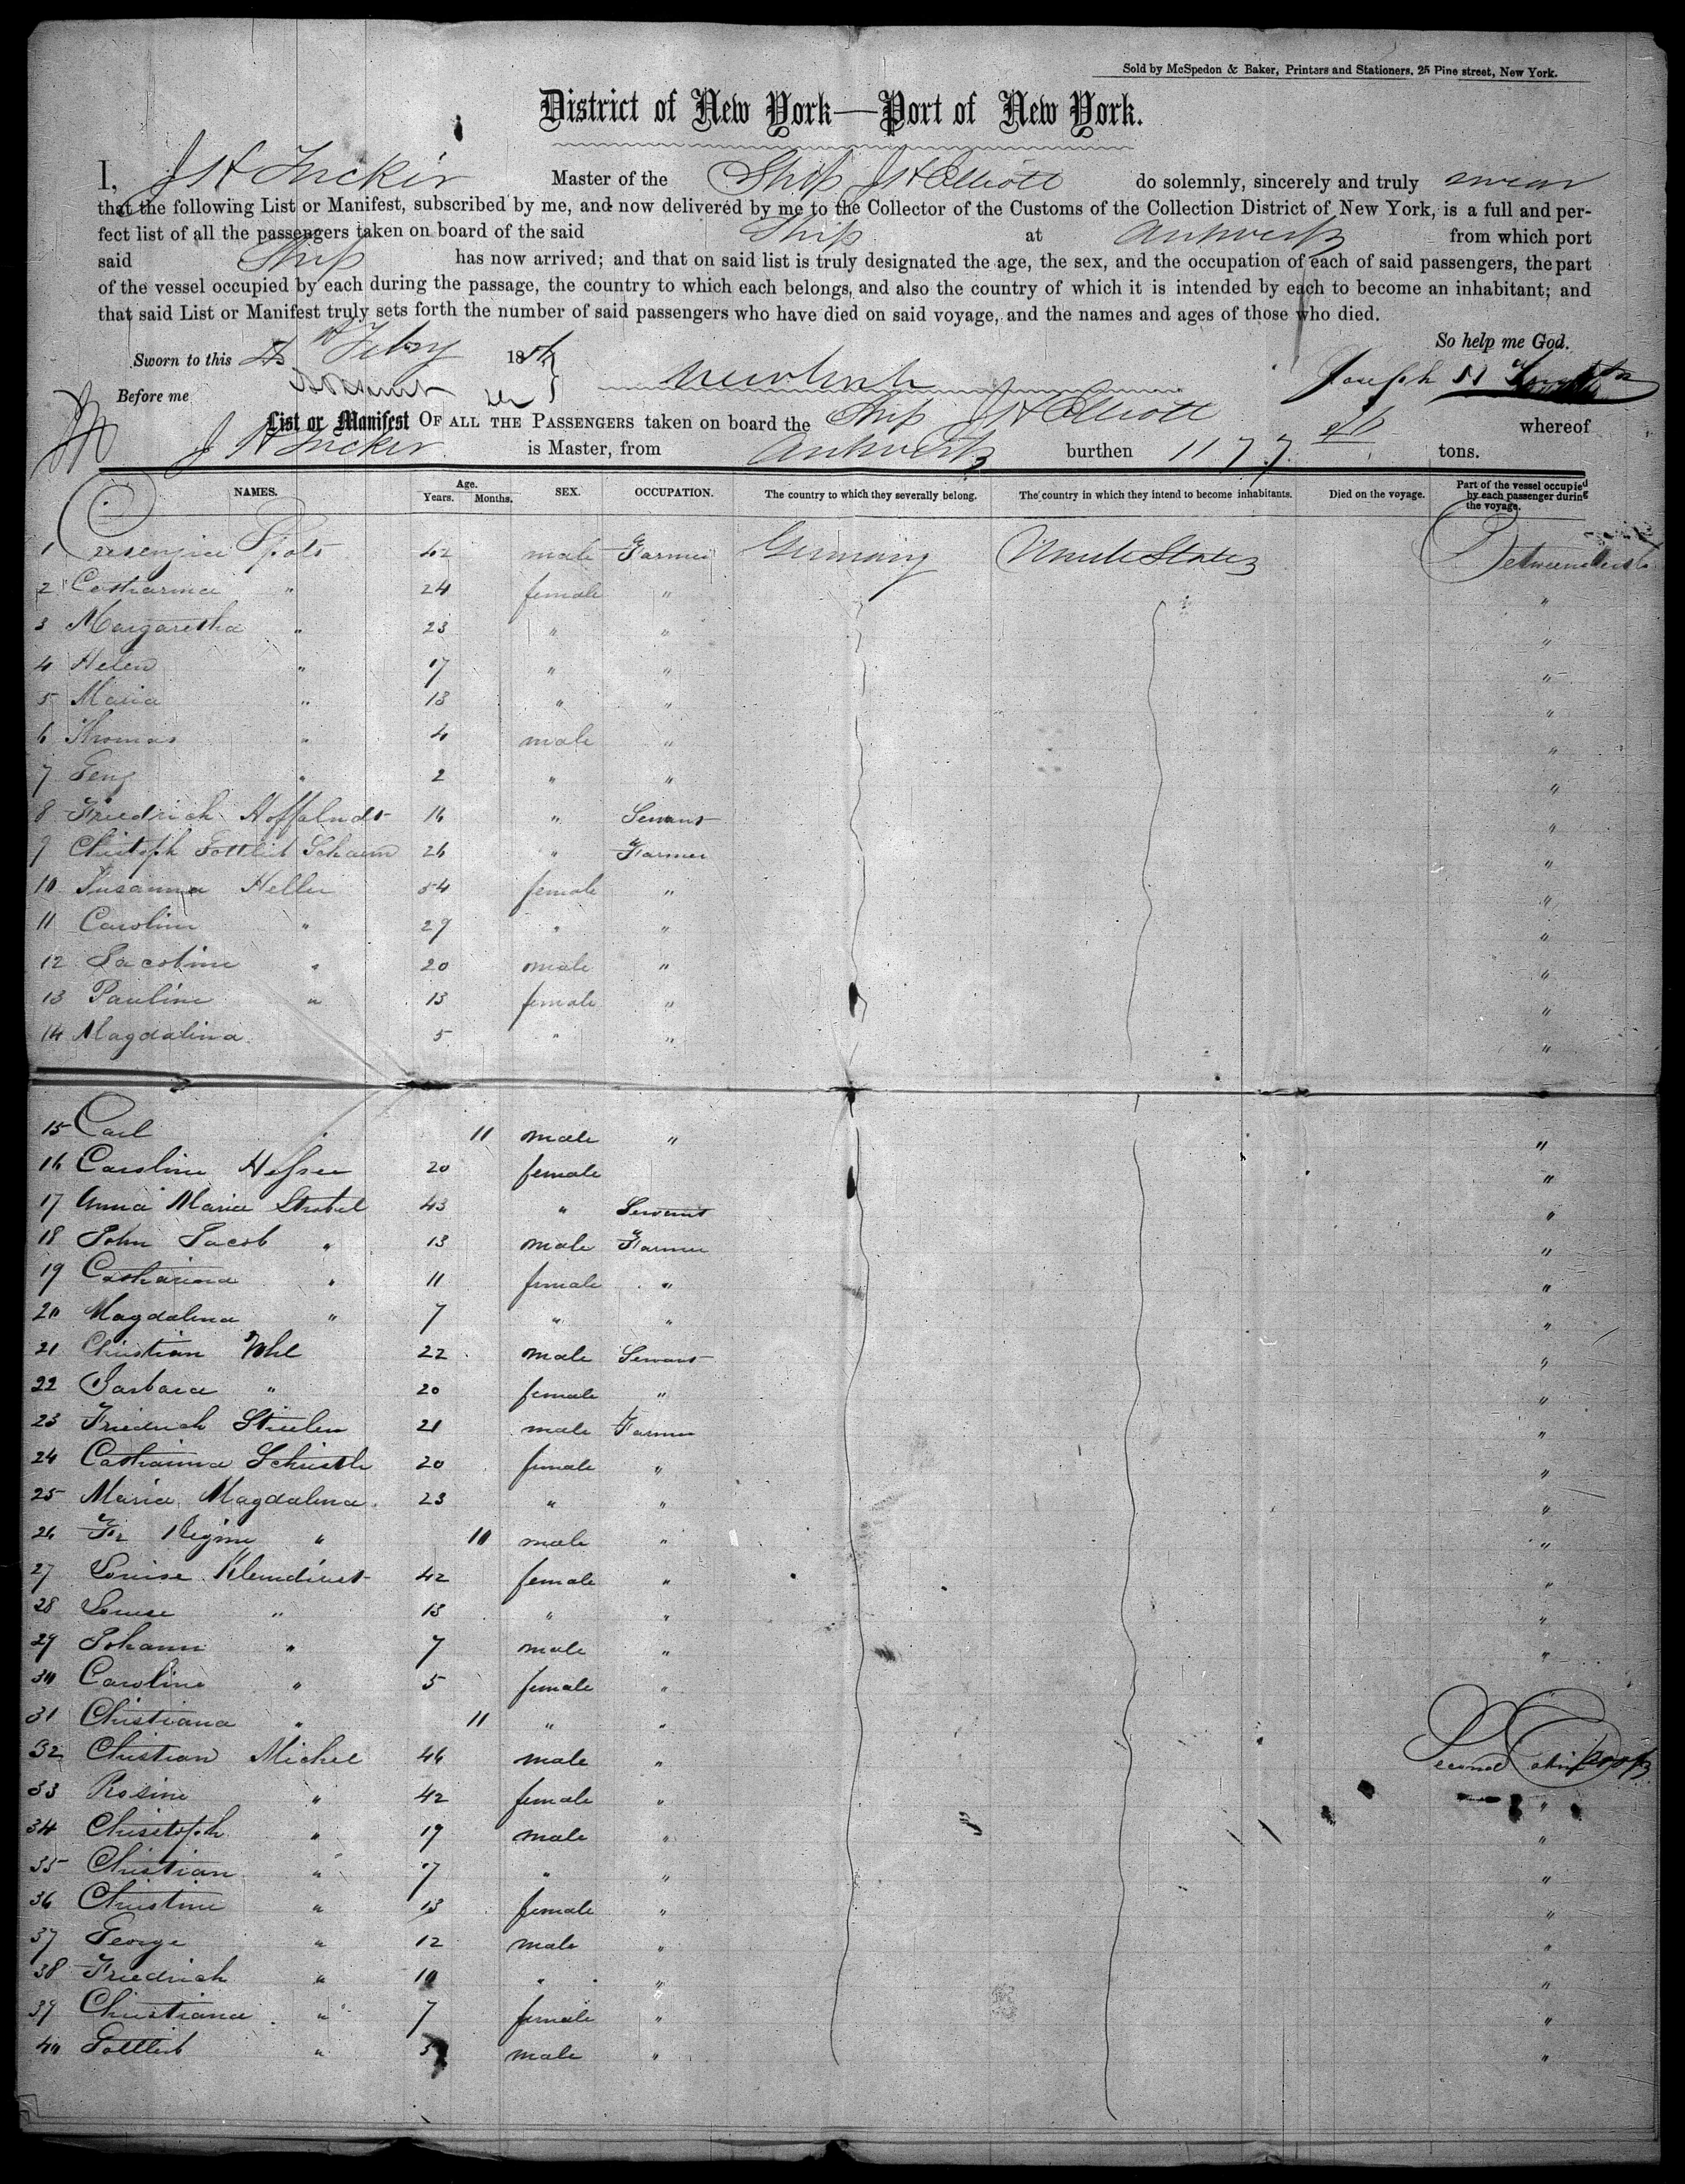 Sold by McSpedon & Baker, Printers and Stationers, 25 Pine street, New York.
District of New York—Port of New York.
I, J H Tucker Master of the Ship J H Elliott do solemnly, sincerely and truly swear
that the following List or Manifest, subscribed by me, and now delivered by me to the Collector of the Customs of the Collection District of New York, is a full and per-
fect list of all the passengers taken on board of the said Ship at Antwerp from which port
said Ship has now arrived; and that on said list is truly designated the age, the sex, and the occupation of each of said passengers, the part
of the vessel occupied by each during the passage, the country to which each belongs, and also the country of which it is intended by each to become an inhabitant; and
that said List or Manifest truly sets forth the number of said passengers who have died on said voyage, and the names and ages of those who died.
So help me God.
Sworn to this Febry 18
Before me Joseph H
List or Manifest OF ALL THE PASSENGERS taken on board the Ship J H Elliott whereof
J H Tucker is Master, from Antwerp burthen 1177 tons.
NAMES. Age. Years. Months. SEX. OCCUPATION. The country to which they severally belong. The country in which they intend to become inhabitants. Died on the voyage. Part of the vessel occupied by each passenger during the voyage.
1 Pots 42 male Farmer Germany United States Between decks
2 Catharina " 24 female " "
3 Margaretha " 23 " " "
4 Helen " 17 " " "
5 Maria " 13 " " "
6 Thomas " 4 male " "
7 " 2 " " "
8 Friedrich 16 " Servant "
9 Christoph Gottlieb 26 " Farmer "
10 Susanna Heller 54 female " "
11 Caroline " 29 " " "
12 Jacobine " 20 male " "
13 Pauline " 13 female " "
14 Magdalina 5 " " "
15 Carl " 11 male " "
16 Caroline 20 female "
17 Anna Maria Strobel 43 " Servant "
18 John Jacob " 13 male Farmer "
19 Catharina " 11 female " "
20 Magdalena " 7 " " "
21 Christian 22 male Servant "
22 Barbara " 20 female " "
23 Friedrich 21 male Farmer "
24 Catharina 20 female " "
25 Maria Magdalena 23 " " "
26 Fr Regine " 10 male " "
27 Louise Klemdienst 42 female " "
28 Louise " 13 " " "
29 Johann " 7 male " "
30 Caroline " 5 female " "
31 Christiana " 11 " "
32 Christian Michel 46 male " Second Cabin Poop
33 Rosine " 42 female " "
34 Chisitoph " 19 male " "
35 Christian " 17 " " "
36 Christine " 13 female " "
37 George " 12 male " "
38 Friedrich " 10 " " "
39 Christiana " 7 female " "
40 Gottlieb " 3 male " "